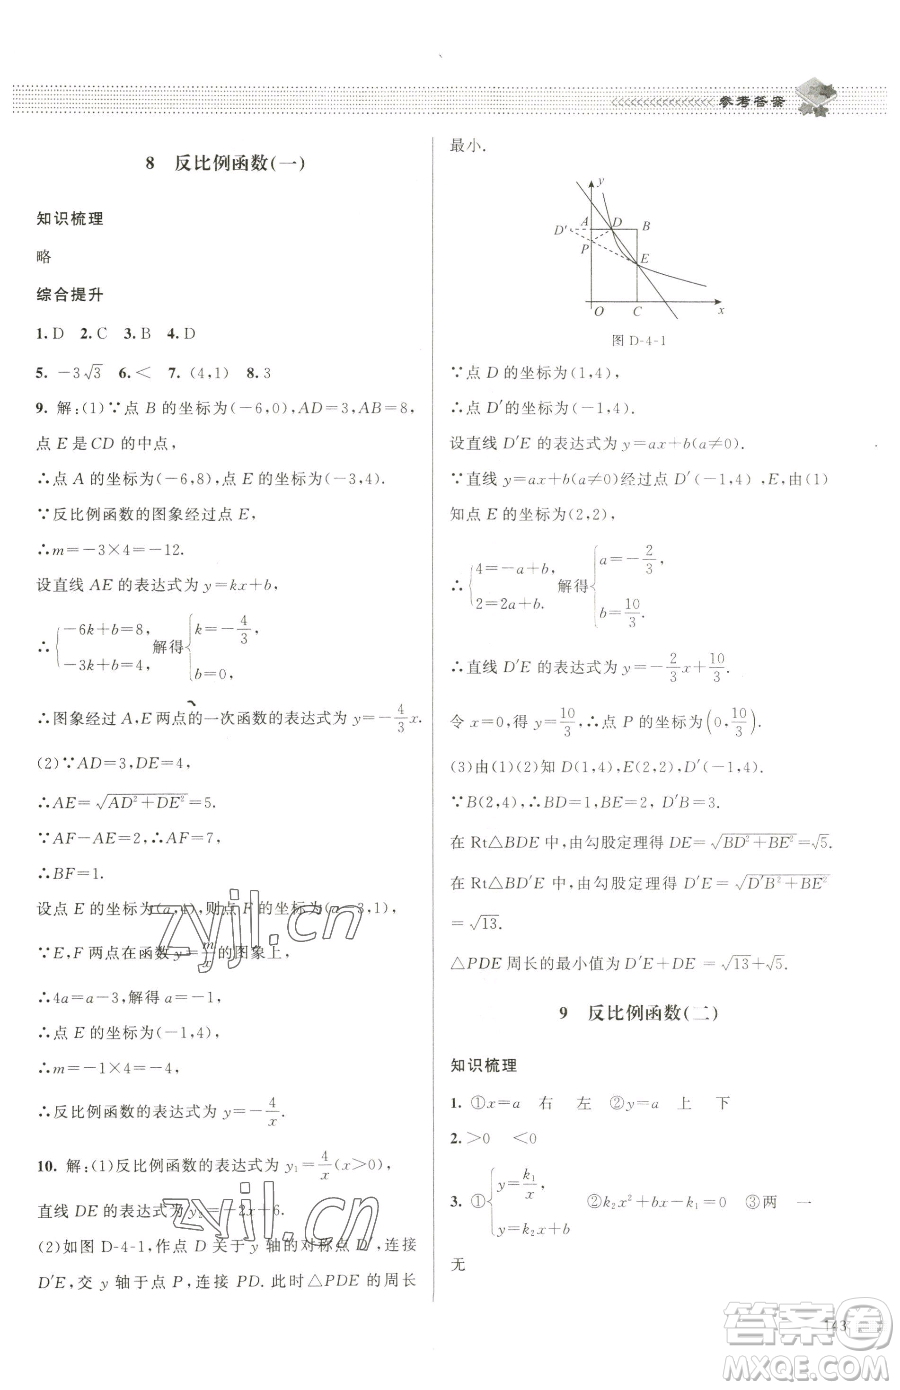 参考答案
8 反比例函数(一)
知识梳理
略
综合提升
1. D 2. C 3. B 4. D
5. －3√3 6. ＜ 7. (4,1) 8. 3
9. 解:(1)∵点 B 的坐标为(－6,0),AD＝3,AB＝8,
点 E 是 CD 的中点,
∴点 A 的坐标为(－6,8),点 E 的坐标为(－3,4).
∵反比例函数的图象经过点 E,
∴m＝－3×4＝－12.
设直线 AE 的表达式为 y＝kx＋b,
∴{－6k＋b＝8, －3k＋b＝4, 解得{k＝－4/3, b＝0,
∴图象经过 A,E 两点的一次函数的表达式为 y＝－4/3 x.
(2)∵AD＝3,DE＝4,
∴AE＝√(AD²＋DE²)＝5.
∵AF－AE＝2,∴AF＝7,
∴BF＝1.
设点 E 的坐标为(a,4),则点 F 的坐标为(a－3,1),
∵E,F 两点在函数 y＝m/x 的图象上,
∴4a＝a－3,解得 a＝－1,
∴点 E 的坐标为(－1,4),
∴m＝－1×4＝－4,
∴反比例函数的表达式为 y＝－4/x.
10. 解:(1)反比例函数的表达式为 y₁＝4/x(x＞0),
直线 DE 的表达式为 y₂＝－2x＋6.
(2)如图 D-4-1,作点 D 关于 y 轴的对称点 D′,连接
D′E,交 y 轴于点 P,连接 PD.此时△PDE 的周长
最小.
y
D′ A D B
P
E
O C x
图 D-4-1
∵点 D 的坐标为(1,4),
∴点 D′的坐标为(－1,4).
设直线 D′E 的表达式为 y＝ax＋b(a≠0).
∵直线 y＝ax＋b 经过点 D′(－1,4),E,由(1)
知点 E 的坐标为(2,2),
∴{4＝－a＋b, 2＝2a＋b. 解得{a＝－2/3, b＝10/3.
∴直线 D′E 的表达式为 y＝－2/3 x＋10/3.
令 x＝0,得 y＝10/3,∴点 P 的坐标为(0,10/3).
(3)由(1)(2)知 D(1,4),E(2,2),D′(－1,4).
∵B(2,4),∴BD＝1,BE＝2,D′B＝3.
在 Rt△BDE 中,由勾股定理得 DE＝√(BD²＋BE²)＝√5.
在 Rt△BD′E 中,由勾股定理得 D′E＝√(D′B²＋BE²)
＝√13.
△PDE 周长的最小值为 D′E＋DE＝√13＋√5.
9 反比例函数(二)
知识梳理
1. ①x＝a 右 左 ②y＝a 上 下
2. ＞0 ＜0
3. ①{y＝k₁/x, y＝k₂x＋b ②k₂x²＋bx－k₁＝0 ③两 一
无
143
zyjl.cn
zyjl.cn
答案圈
MXQE.COM